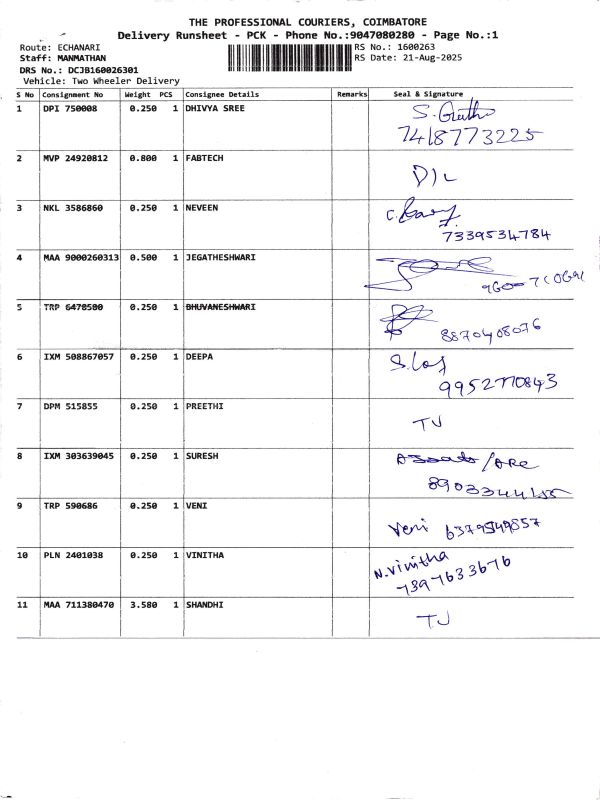 THE PROFESSIONAL COURIERS, COIMBATORE
Delivery Runsheet - PCK - Phone No.:9047080280 - Page No.:1
Route: ECHANARI
RS No.: 1600263
Staff: MANMATHAN
RS Date: 21-Aug-2025
DRS No.: DCJB160026301
Vehicle: Two Wheeler Delivery
S No Consignment No Weight PCS Consignee Details Remarks Seal & Signature
1 DPI 750008 0.250 1 DHIVYA SREE
7418773225
2 MVP 24920812 0.800 1 FABTECH
D/L
3 NKL 3586860 0.250 1 NEVEEN
7339534784
4 MAA 9000260313 0.500 1 JEGATHESHWARI
5 TRP 6470500 0.250 1 BHUVANESHWARI
8870408076
6 IXM 508867057 0.250 1 DEEPA
9952770843
7 DPM 515855 0.250 1 PREETHI
TJ
8 IXM 303639045 0.250 1 SURESH
9 TRP 590686 0.250 1 VENI
Veni 6379549857
10 PLN 2401038 0.250 1 VINITHA
N.Vinitha
7397633676
11 MAA 711380470 3.580 1 SHANDHI
TJ